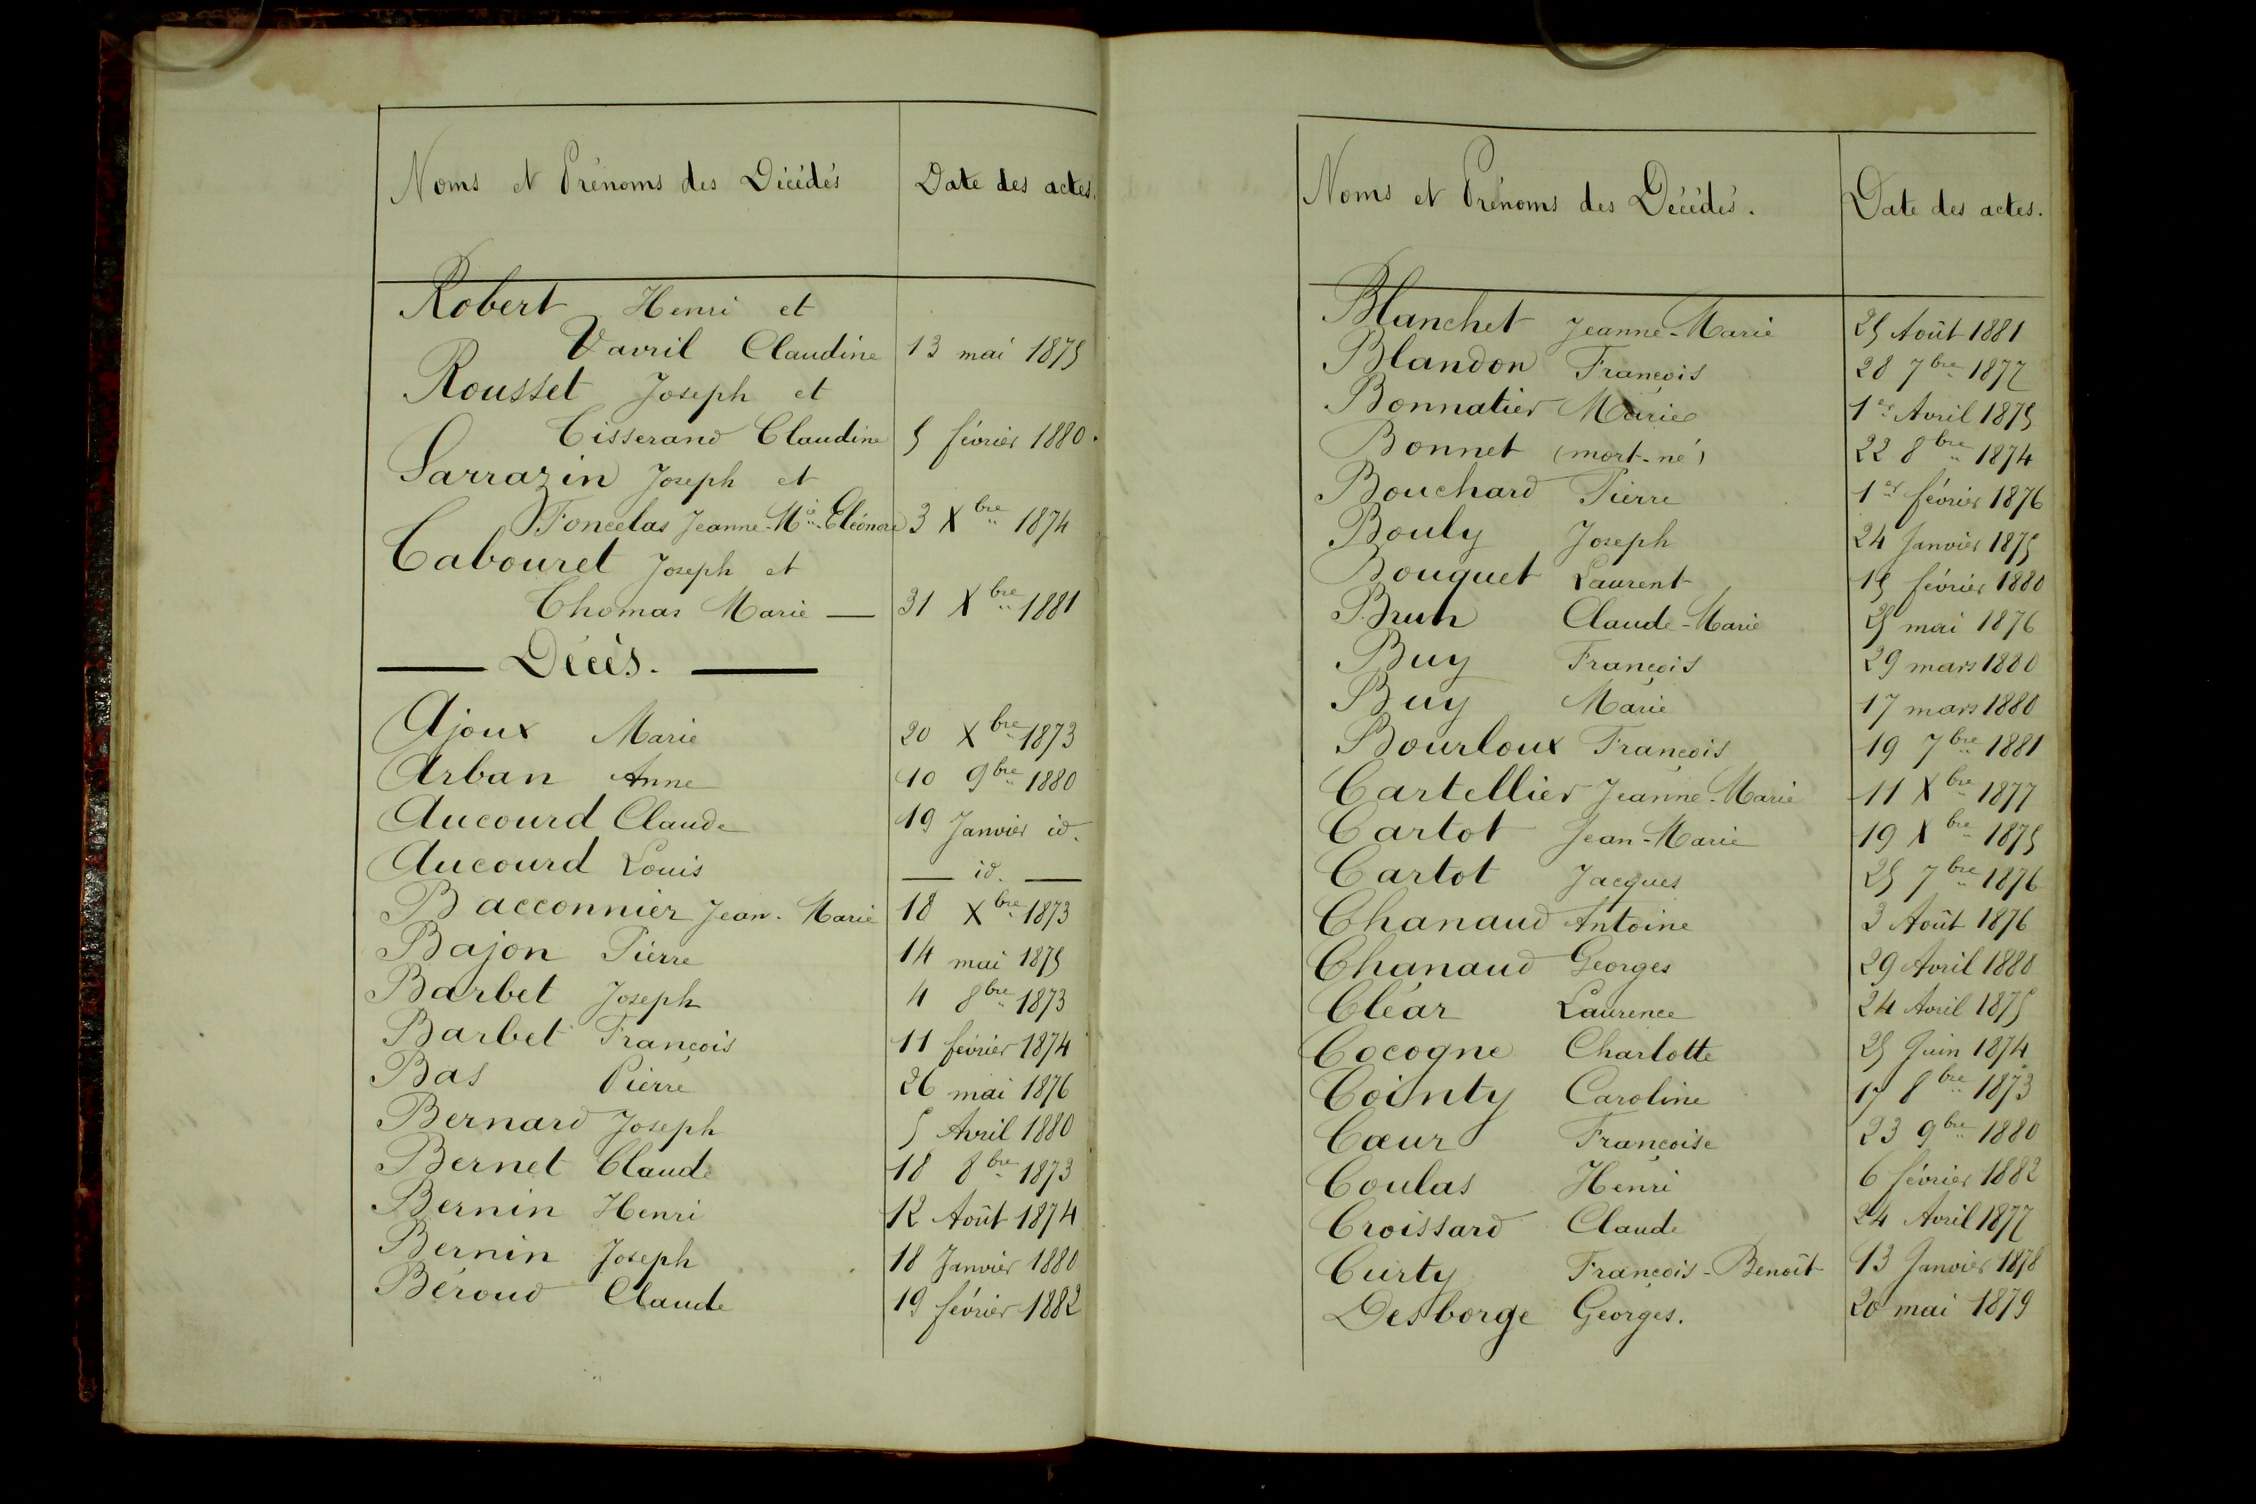 Noms et Prénoms des Décédés Date des actes.
Robert Henri et
Vavril Claudine 13 mai 1875
Rousset Joseph et
Tisserand Claudine 5 février 1880.
Sarrazin Joseph et
Foncelas Jeanne-Mie-Eléonore 3 Xbre 1874
Tabouret Joseph et
Thomas Marie — 31 Xbre 1881
— Décès. —
Ajoux Marie 20 Xbre 1873
Arban Anne 10 9bre 1880
Aucourd Claude 19 Janvier id.
Aucourd Louis — id. —
Bacconnier Jean-Marie 18 Xbre 1873
Bajon Pierre 14 mai 1875
Barbet Joseph 4 8bre 1873
Barbet François 11 février 1874
Bas Pierre 26 mai 1876
Bernard Joseph 5 Avril 1880
Bernet Claude 18 8bre 1873
Bernin Henri 12 Août 1874
Bernin Joseph 18 Janvier 1880
Béroud Claude 19 février 1882
Noms et Prénoms des Décédés. Date des actes.
Blanchet Jeanne-Marie 25 Août 1881
Blandon François 28 7bre 1877
Bonnatier Marie 1er Avril 1875
Bonnet (mort-né) 22 8bre 1874
Bouchard Pierre 1er février 1876
Bouly Joseph 24 Janvier 1875
Bouquet Laurent 15 février 1880
Brun Claude-Marie 25 mai 1876
Buy François 29 mars 1880
Buy Marie 17 mars 1880
Bourloux François 19 7bre 1881
Cartellier Jeanne-Marie 11 Xbre 1877
Cartot Jean-Marie 19 Xbre 1875
Cartot Jacques 25 7bre 1876
Chanaud Antoine 3 Août 1876
Chanaud Georges 29 Avril 1880
Cléar Laurence 24 Avril 1875
Cocogne Charlotte 25 Juin 1874
Cointy Caroline 17 8bre 1873
Cœur Françoise 23 9bre 1880
Coulas Henri 6 février 1882
Croissard Claude 24 Avril 1877
Curty François-Benoît 13 Janvier 1878
Desborge Georges. 20 mai 1879